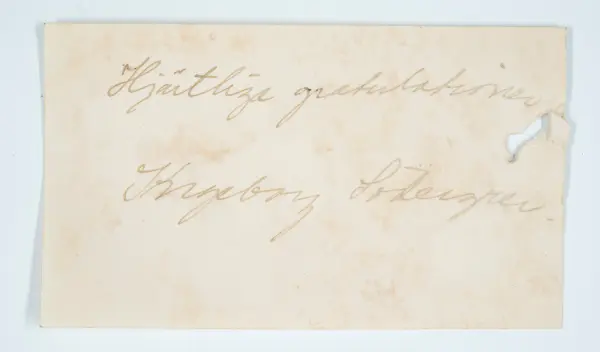 Hjärtliga gratulationer
Ingeborg Södergren.